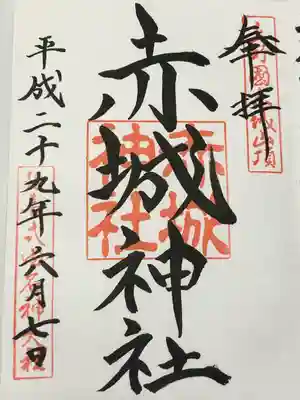 奉拝
赤城神社
平成二十九年六月七日
赤城
神社